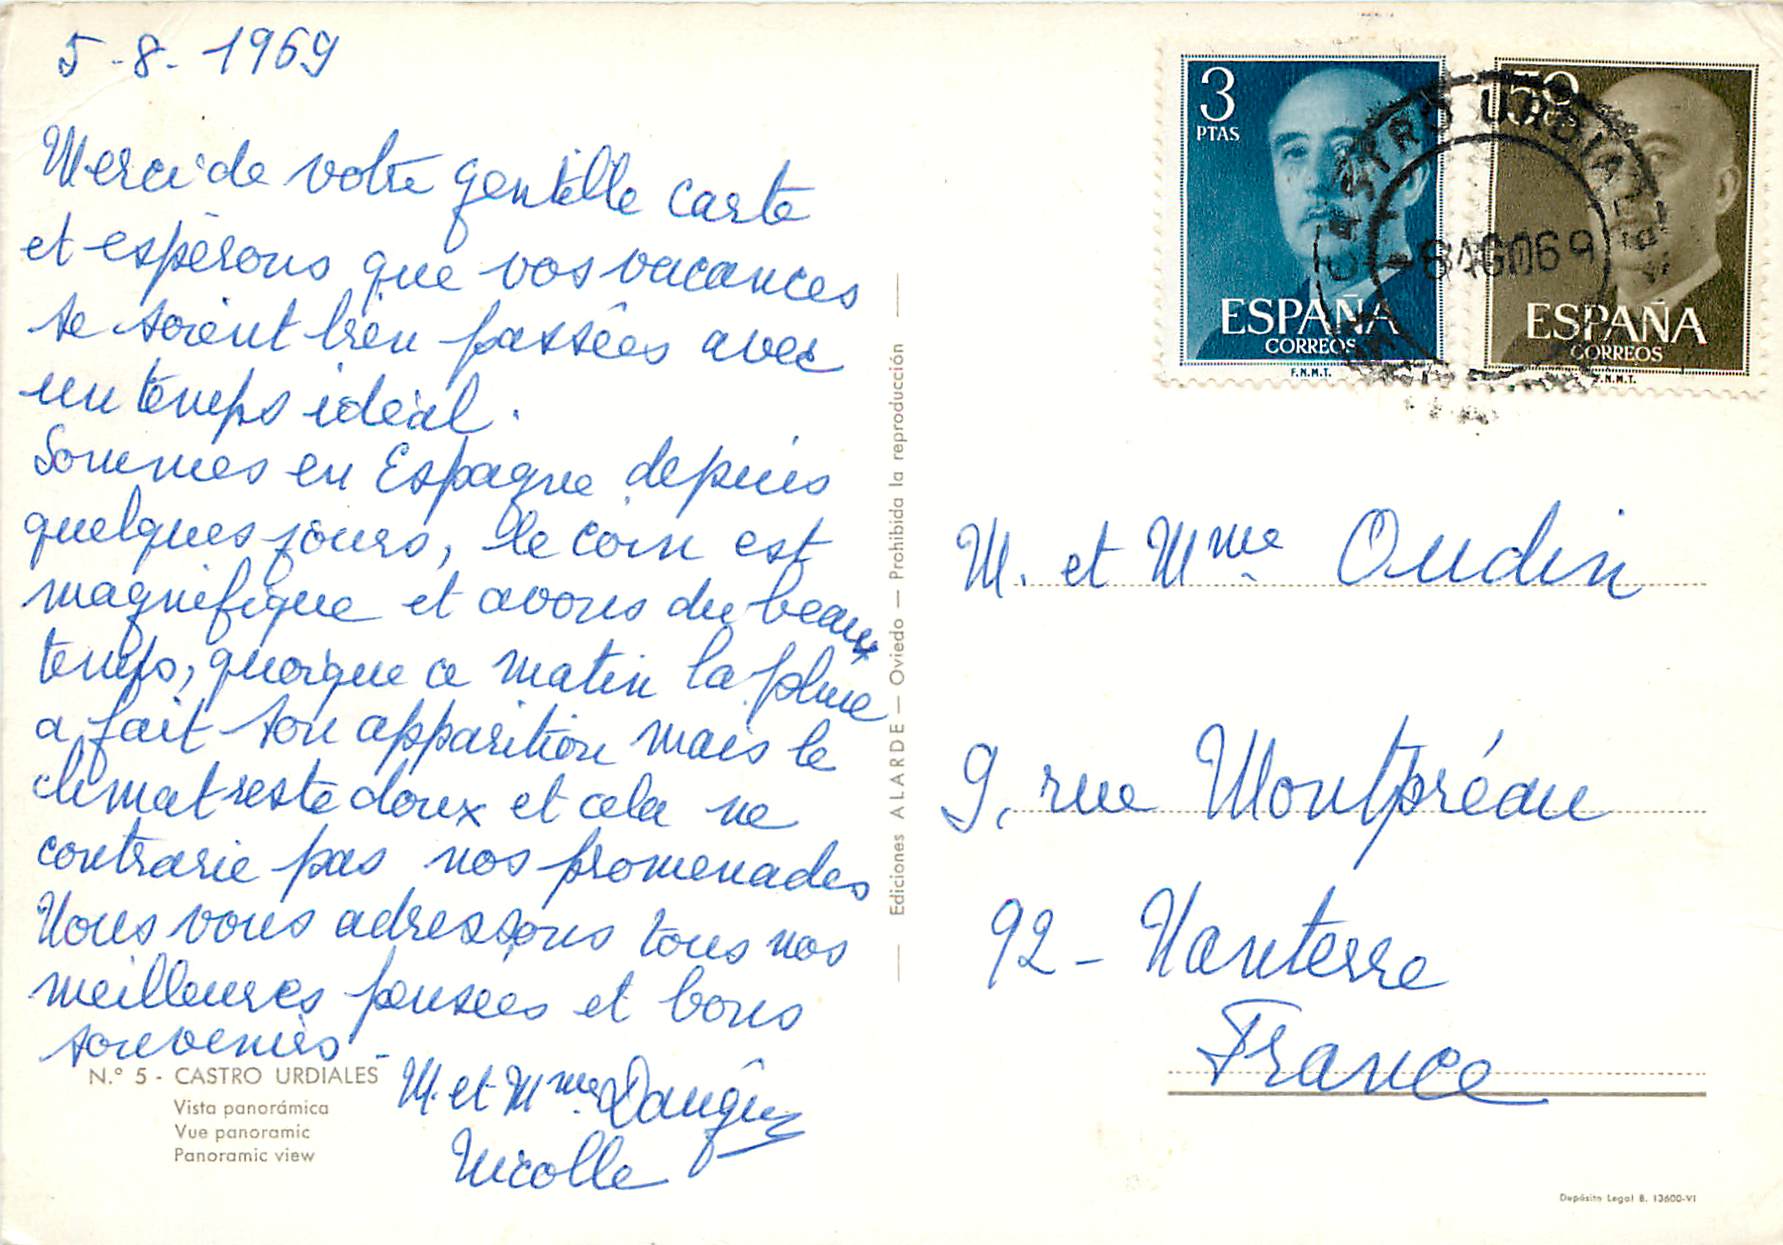 5-8-1969
Merci de votre gentille carte
et espérons que vos vacances
se soient bien passées avec
un temps idéal.
Sommes en Espagne depuis
quelques jours, le coin est
magnifique et avons du beau
temps, quoique ce matin la pluie
a fait son apparition mais le
climat reste doux et cela ne
contrarie pas nos promenades
Nous vous adressons tous nos
meilleures pensées et bons
souvenirs -
M. et Mme
Nicolle
N.° 5 - CASTRO URDIALES
Vista panorámica
Vue panoramic
Panoramic view
Ediciones ALARDE — Oviedo — Prohibida la reproducción
3
PTAS
ESPAÑA
CORREOS
F.N.M.T.
50
ESPAÑA
CORREOS
F.N.M.T.
CASTRO URDIALES
6 AGO 69
M. et Mme Oudin
9, rue Montpréau
92 - Nanterre
France
Depósito Legal B. 13600-VI